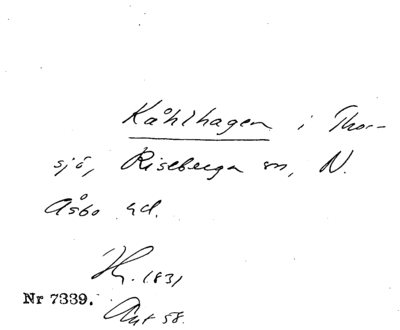 Kåhlhagen i Thor-
sjö, Riseberga sn, N.
Åsbo hd.
1831
Nr 7339.
Akt 58.